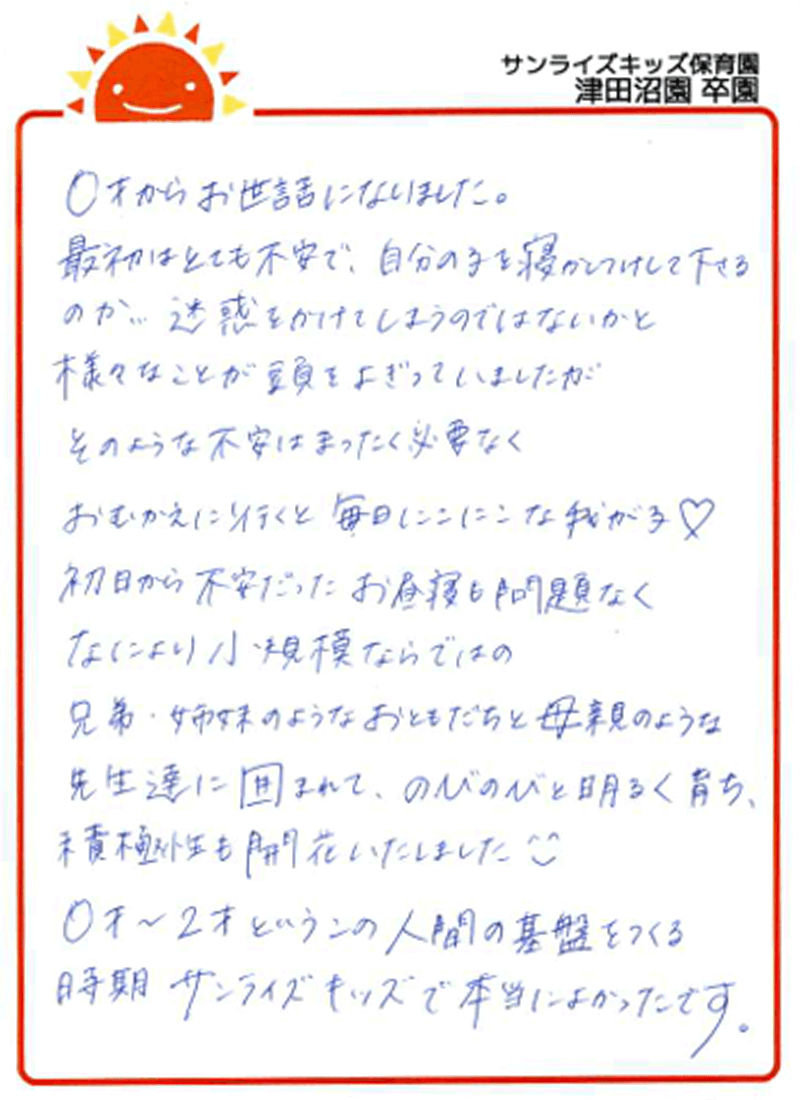 サンライズキッズ保育園
津田沼園 卒園
0才からお世話になりました。
最初はとても不安で、自分の子を寝かしつけして下さる
のか… 迷惑をかけてしまうのではないかと
様々なことが頭をよぎっていましたが
そのような不安はまったく必要なく
おむかえに行くと 毎日にこにこな我が子♡
初日から不安だったお昼寝も問題なく
なにより小規模ならではの
兄弟・姉妹のようなおともだちと母親のような
先生達に囲まれて、のびのびと明るく育ち、
積極性も開花いたしました^^
0才〜2才というこの人間の基盤をつくる
時期 サンライズキッズで本当によかったです。